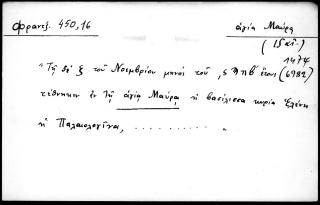 Φραντζ. 450,16 ἁγία Μαύρα
(15 αἰ.)
1474
"Τῇ δὲ ξ τοῦ Νοεμβρίου μηνὸς τοῦ ,ςϠπβʹ ἔτους (6982)
τέθνηκεν ἐν τῇ ἁγίᾳ Μαύρᾳ ἡ βασίλισσα κυρία Ἑλένη
ἡ Παλαιολογῖνα, .......... "